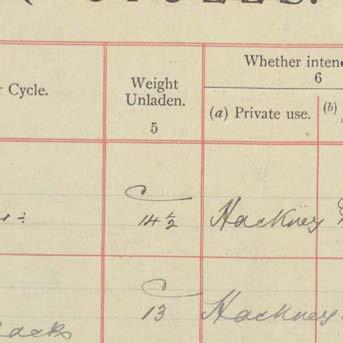 r Cycle.
Weight
Unladen.
5
Whether inten
6
(a) Private use.
(b)
C
14½
Hackney
C
13
Hackney